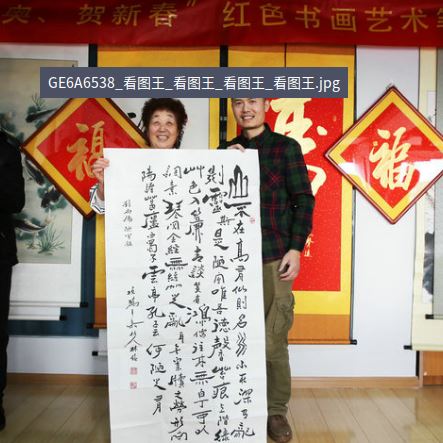 、贺新春”红色书画艺术
GE6A6538_看图王_看图王_看图王_看图王.jpg
福
福
山不在高有仙则名水不在深有龍
则靈斯是陋室惟吾德馨苔痕上階绿
艸色入簾青談笑有鴻儒往来無白丁可以
调素琴阅金經無丝竹之亂耳無案牘之勞形南
陽諸葛廬西蜀子雲亭孔子云何陋之有
劉禹锡陋室铭